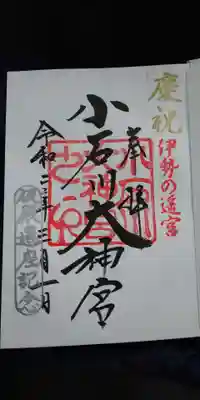 慶祝
伊勢の遥宮
奉拝
小石川大神宮
令和二年三月一日
遷座記念